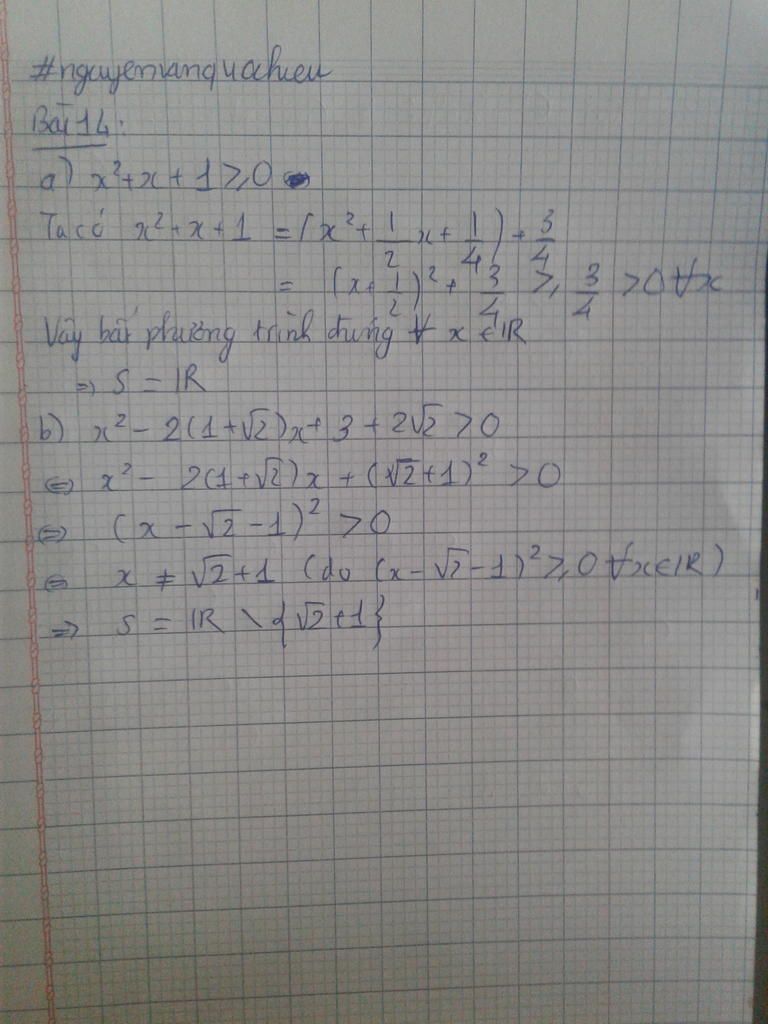 #nguyenvanquochieu
Bài 14:
a) x²+x+1 ≥ 0
Ta có x²+x+1 = (x²+1/2 x+1/4)+3/4
= (x+1/2)²+3/4 ≥ 3/4 >0 ∀x
Vậy bất phương trình đúng ∀ x ∈ ℝ
=> S = ℝ
b) x² - 2(1+√2)x+ 3 + 2√2 > 0
⇔ x² - 2(1+√2)x + (√2+1)² > 0
⇔ (x - √2 - 1)² > 0
⇔ x ≠ √2+1 (do (x-√2-1)² ≥ 0 ∀x∈ℝ)
=> S = ℝ \ {√2+1}